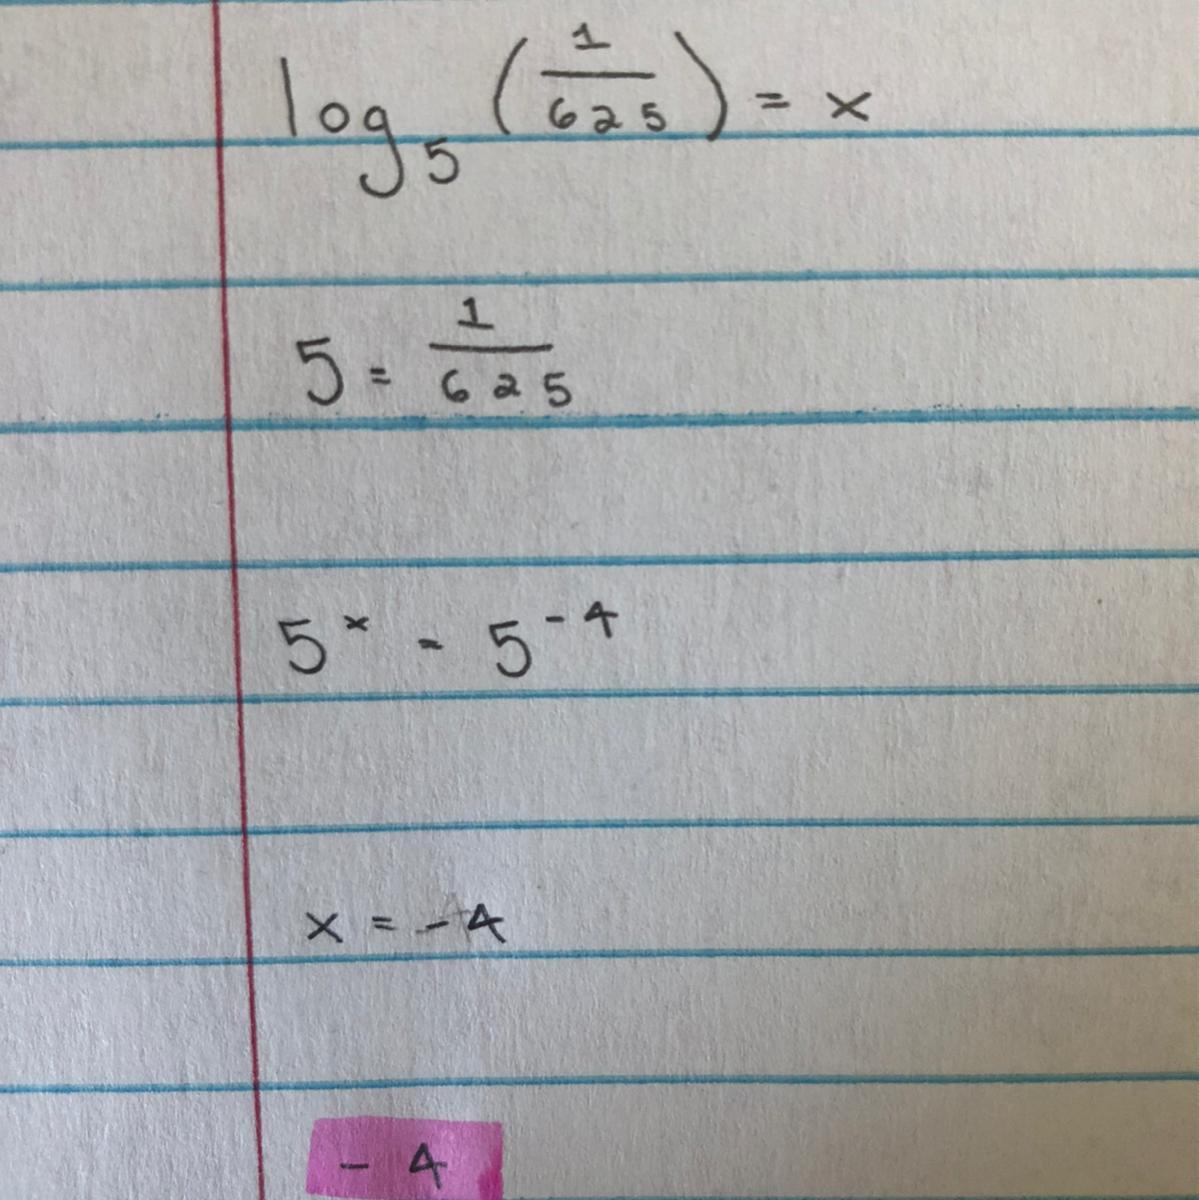 log₅ (1/625) = x
5 = 1/625
5ˣ = 5⁻⁴
x = -4
- 4